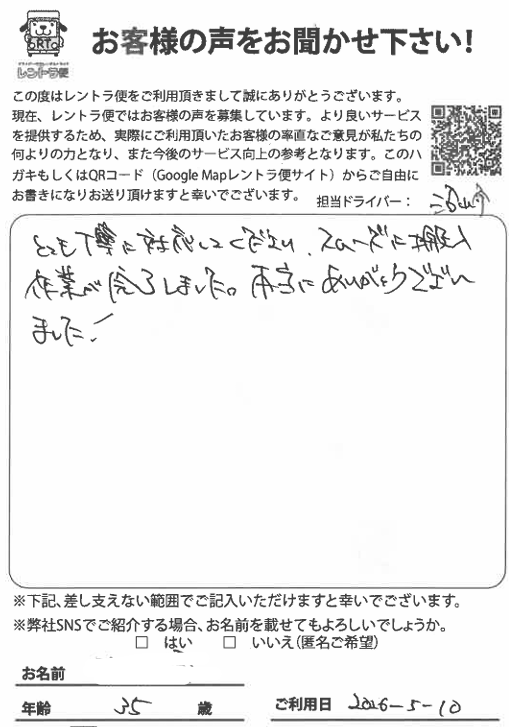 RTO
レントラ便
お客様の声をお聞かせ下さい！
この度はレントラ便をご利用頂きまして誠にありがとうございます。
現在、レントラ便ではお客様の声を募集しています。より良いサービス
を提供するため、実際にご利用頂いたお客様の率直なご意見が私たちの
何よりの力となり、また今後のサービス向上の参考となります。このハ
ガキもしくはQRコード（Google Mapレントラ便サイト）からご自由に
お書きになりお送り頂けますと幸いでございます。
担当ドライバー：
とても丁寧に対応してくださり、スムーズに搬入
作業が完了しました。本当にありがとうござい
ました！
※下記、差し支えない範囲でご記入いただけますと幸いでございます。
※弊社SNSでご紹介する場合、お名前を載せてもよろしいでしょうか。
□ はい □ いいえ（匿名ご希望）
お名前
年齢 35 歳
ご利用日 2026-5-10